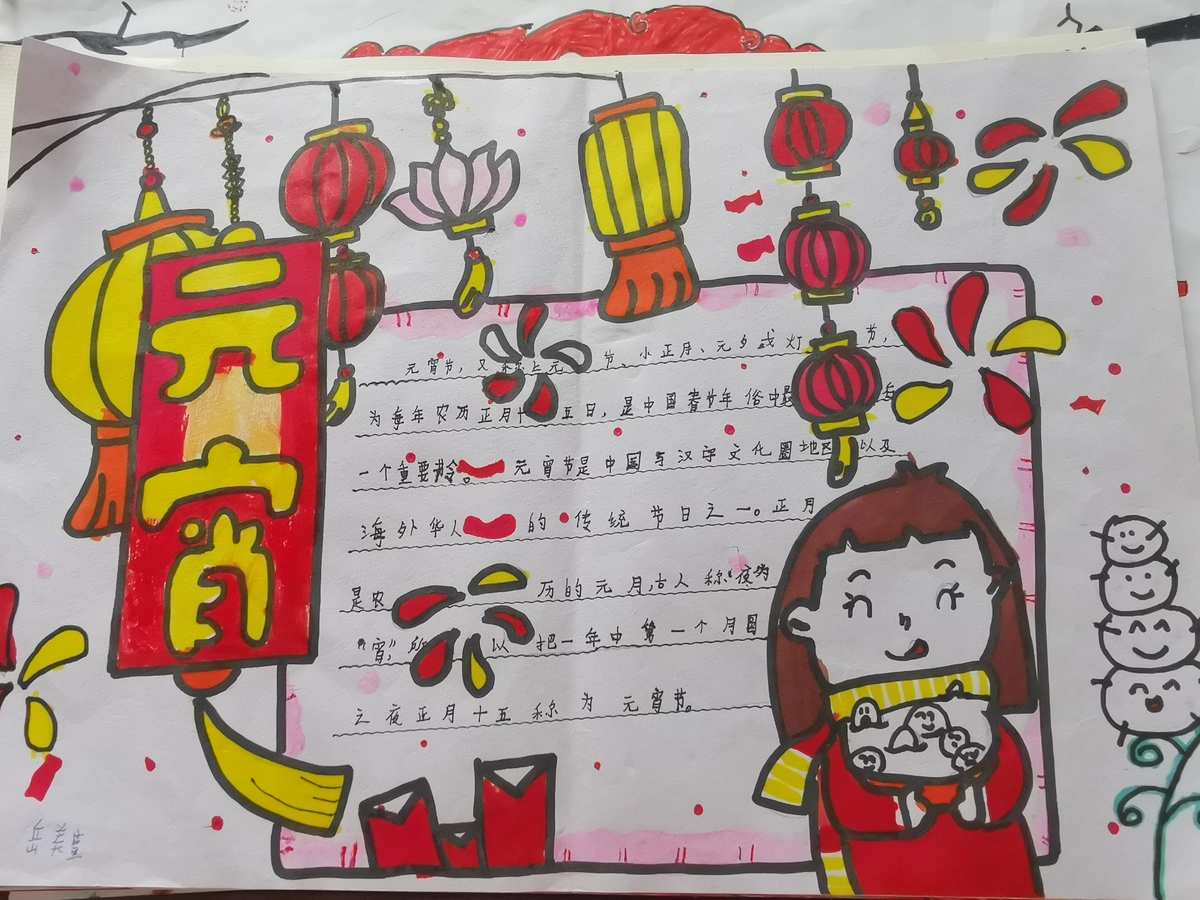 元宵
元宵节,又称上元节、小正月、元夕或灯节,
为每年农历正月十五日,是中国春节年俗中最
一个重要节令。元宵节是中国与汉字文化圈地区以及
海外华人的传统节日之一。正月
是农历的元月,古人称“夜”为
“宵”,所以把一年中第一个月圆
之夜正月十五称为元宵节。